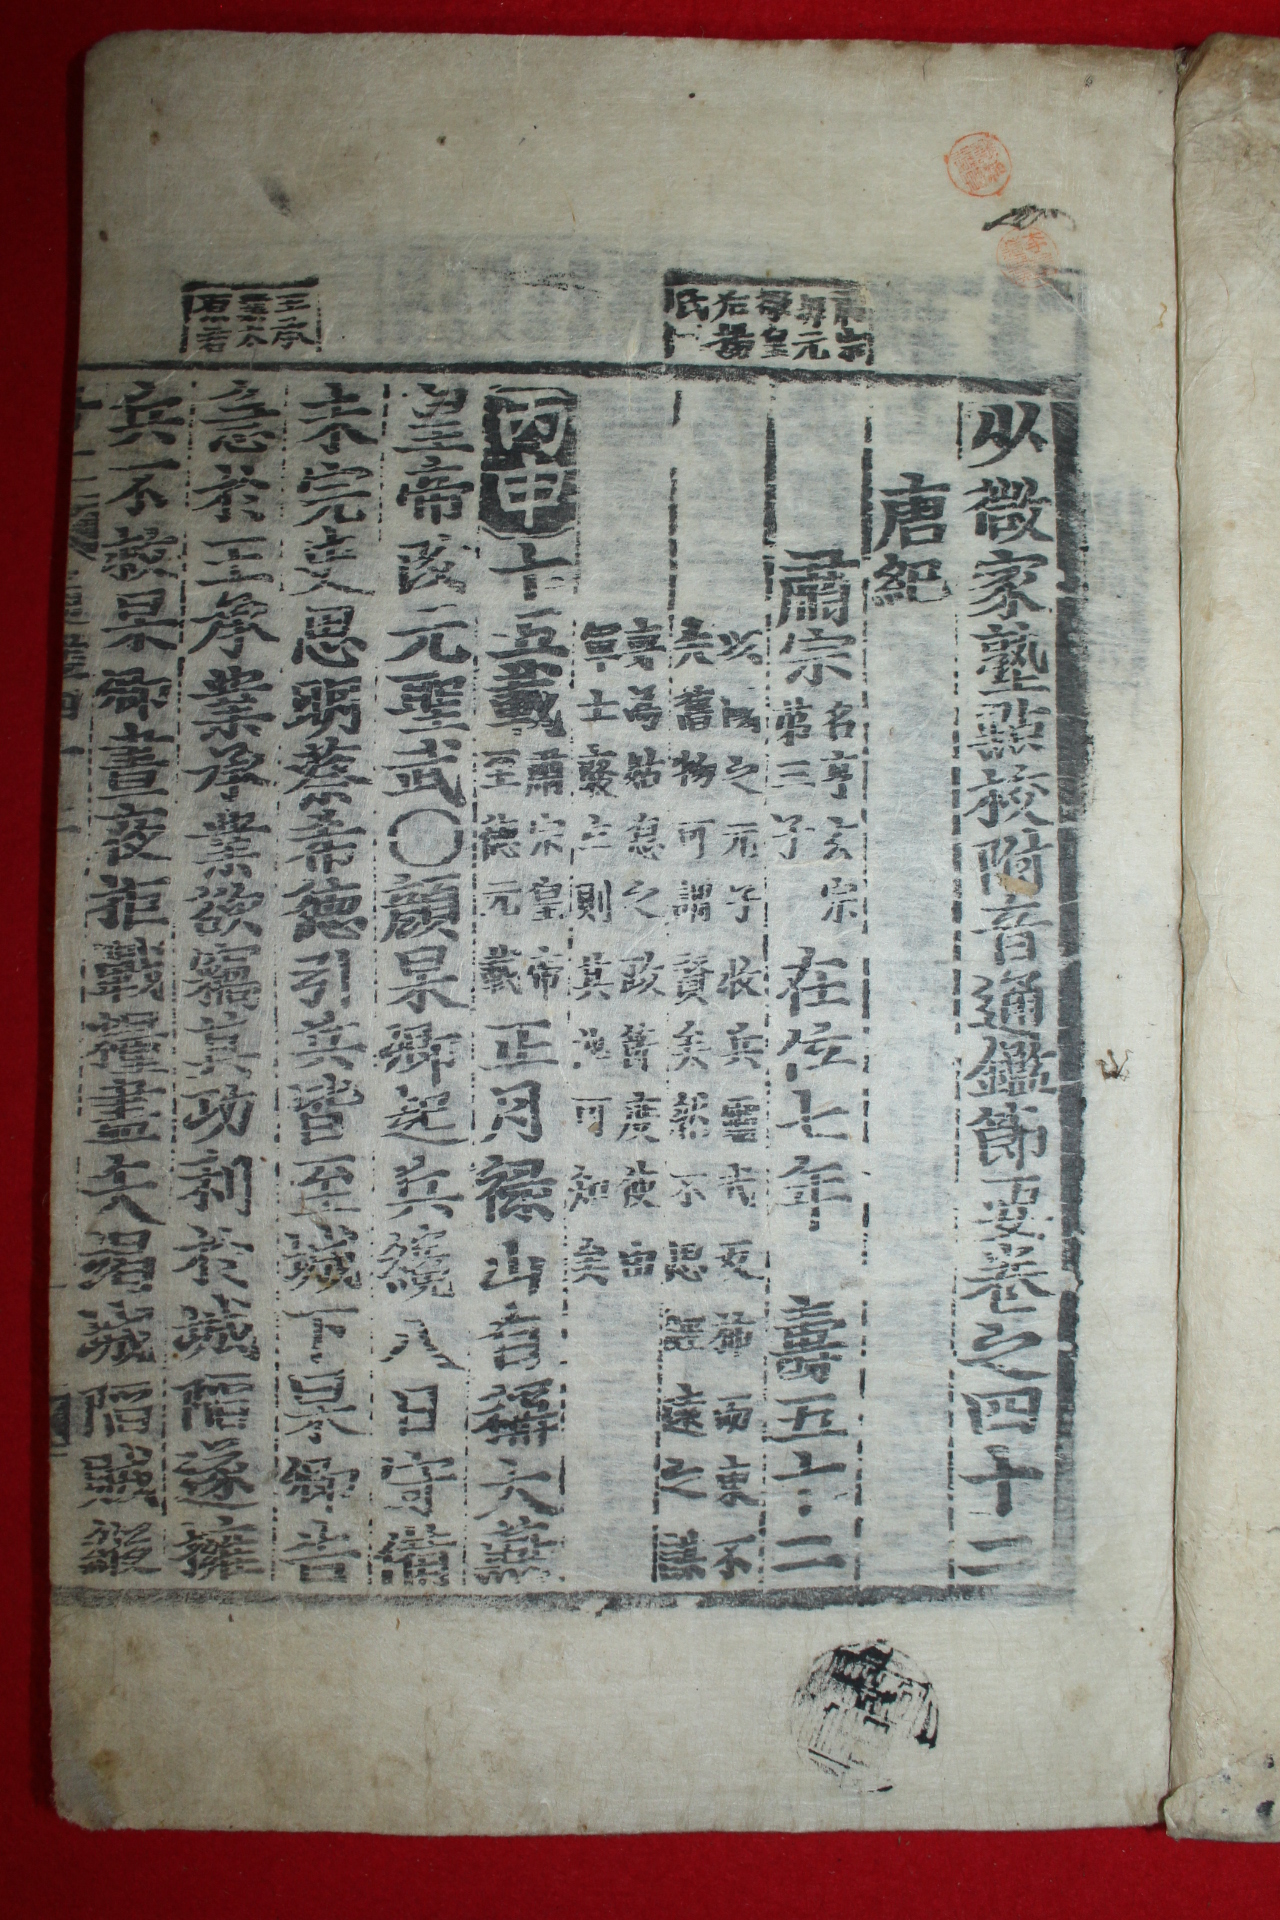 少微家塾點校附音通鑑節要卷之四十二
唐紀
肅宗 名亨玄宗第三子 在位七年 壽五十二
以國之元子收兵靈武反旆而東不
失舊物可謂賢矣然不思經遠之謀
專爲姑息之政節度使由
軍士襲立則其他可知矣
丙申十五載 肅宗皇帝至德元載 正月祿山自稱大燕
皇帝改元聖武○顔杲卿起兵纔八日守備
未完史思明蔡希德引兵皆至城下杲卿告
急於王承業承業欲竊其功利於城陷遂擁
兵不救杲卿晝夜拒戰糧盡矢竭城陷賊縱
肅宗
母元
皇
后楊
氏
王承
業太
原